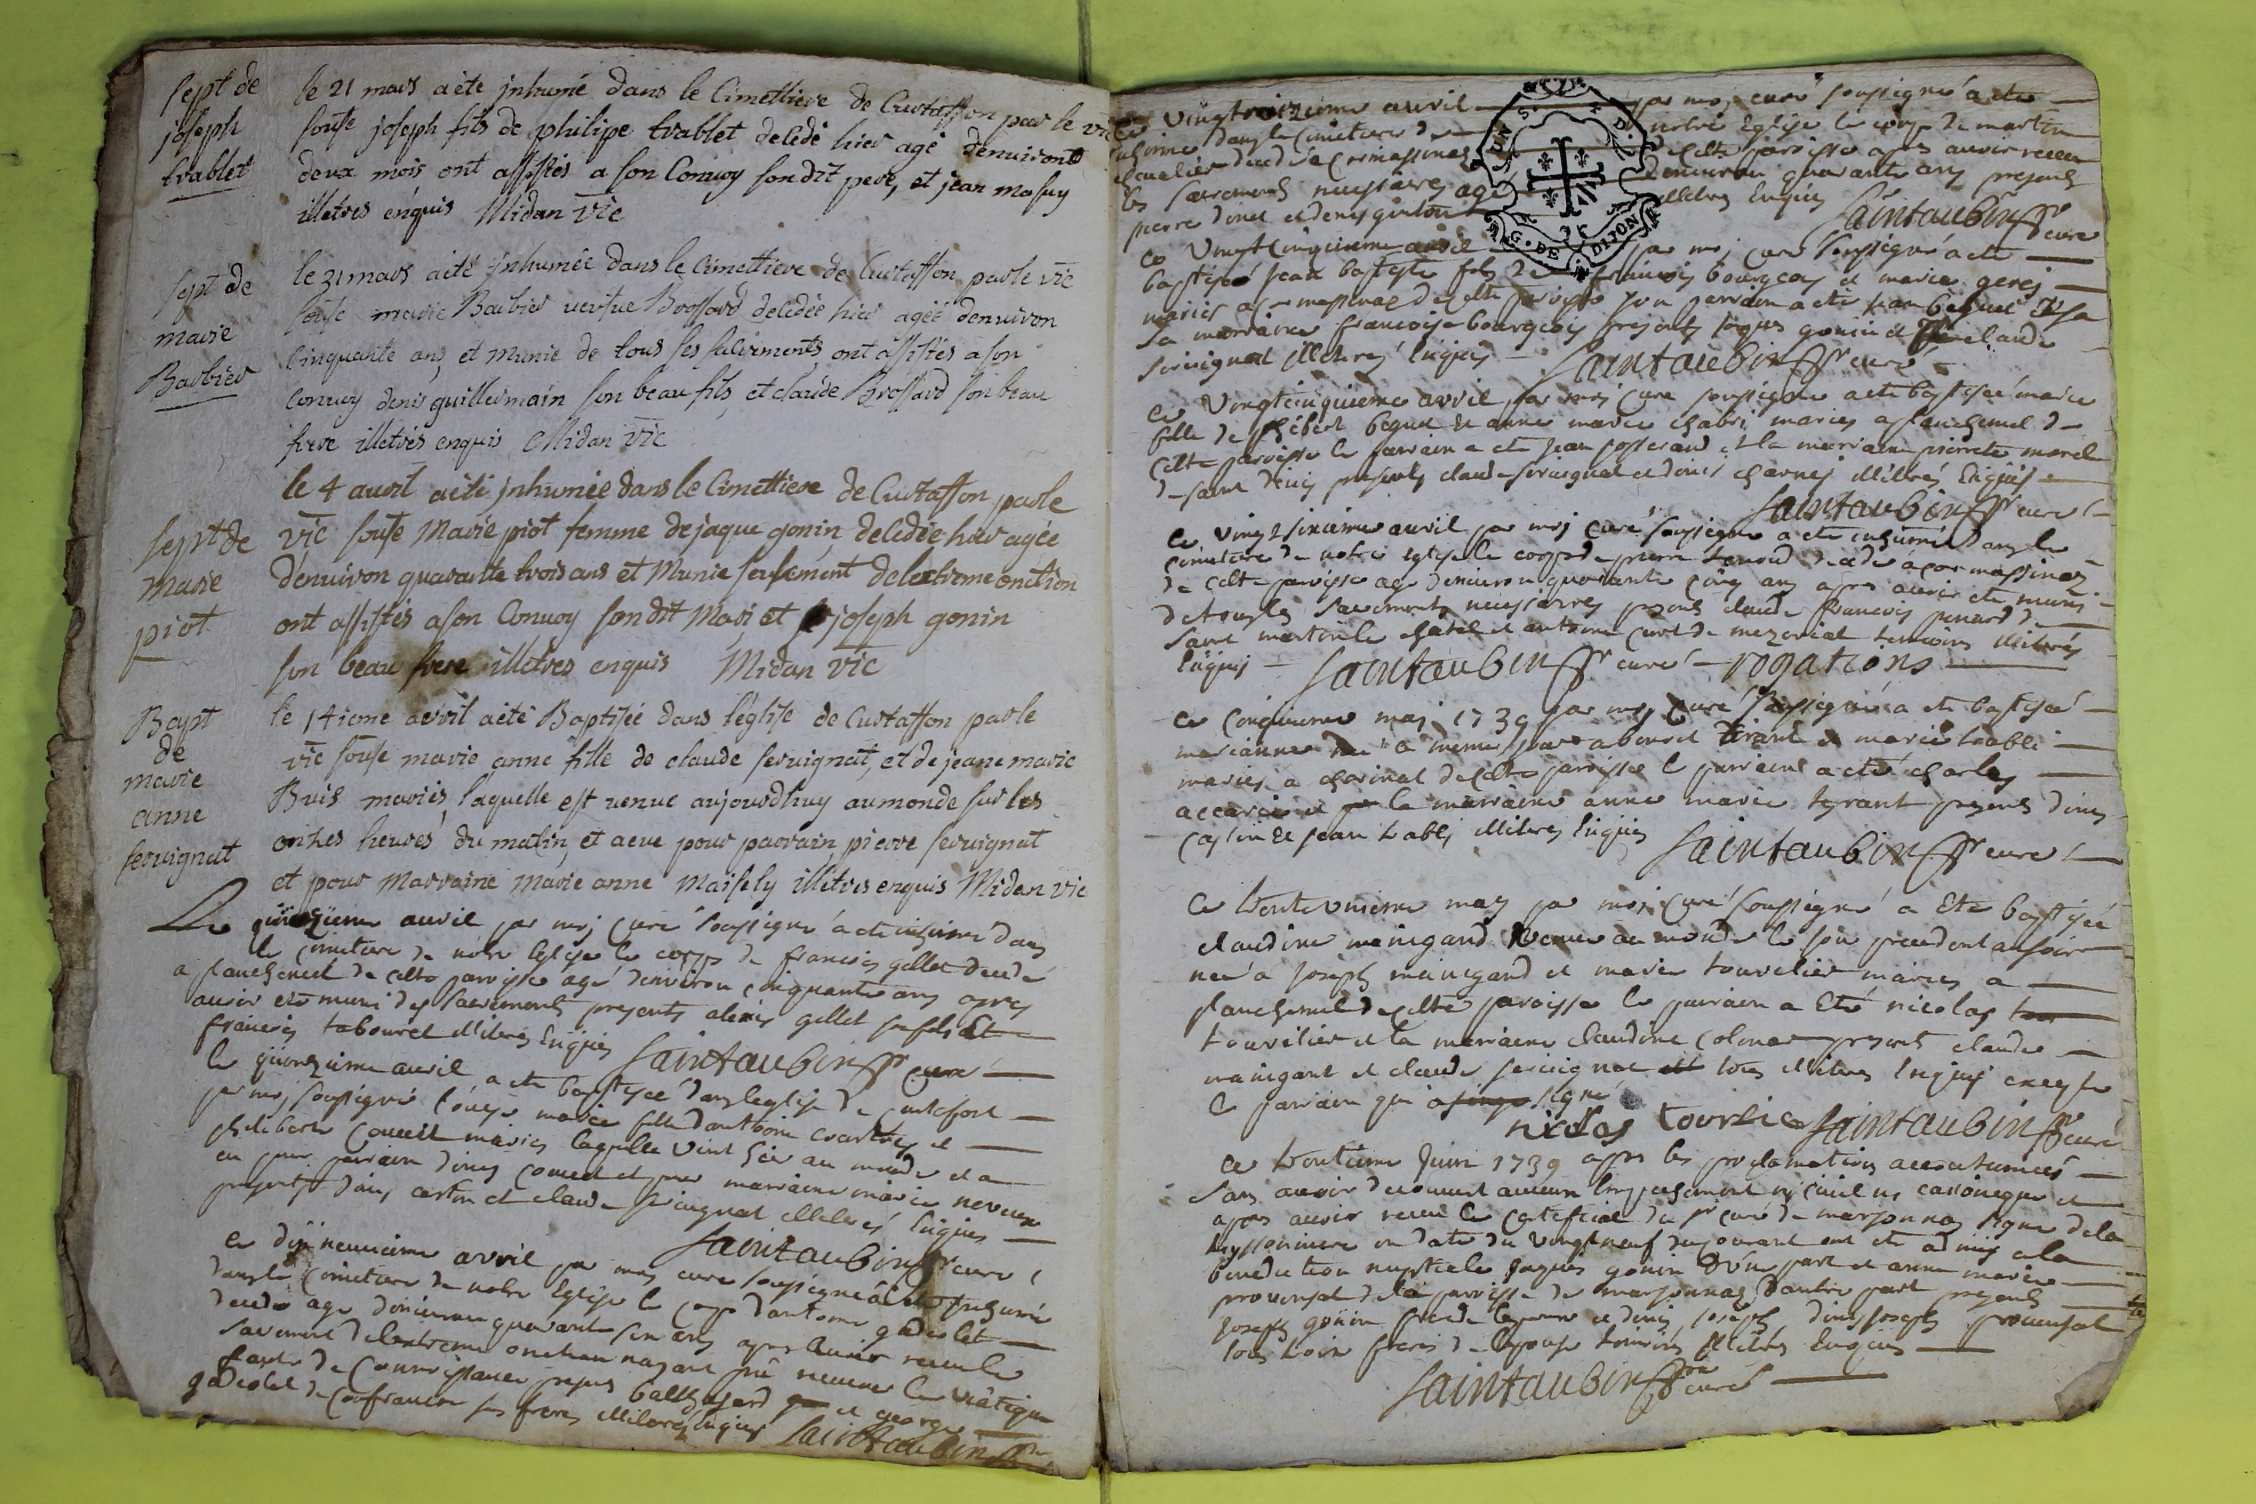 Sept de
joseph
trablet
le 21 mars a été jnhumé dans le Cimettiere de Curtaffon par le vic
souse joseph fils de philipe trablet decedé hier agé denuiront
deux mois ont assistés a son Convoy son dit pere, et jean masuy
illetres enquis Midan vic
Sept de
marie
Barbier
le 31 mars a été jnhumée dans le Cimettiere de Curtaffon par le vic
souse marie Barbier veufue Brossard decedée hier agée denuiron
Cinquante ans, et munie de tous ses sacrements, ont assistés a son
Convoy denis guillermain son beau fils, et claude Brossard son beau
frere illetrés enquis Midan vic
Sept de
Marie
piot
le 4 avril a été jnhumée dans le Cimettiere de Curtaffon par le
vic souse Marie piot femme de jaque gonin decedée hier agée
d'enuiron quarante trois ans et Munie seulement de lextreme onction
ont assistés a son Convoy son dit Mari et joseph gonin
son beau frere illetres enquis Midan vic
Bapt
de
marie
anne
seruignat
le 14ieme avril a été Baptisée dans l'église de Curtaffon par le
vic souse marie anne fille de claude seruignat, et de jeane marie
Buis mariés laquelle est venue aujourdhuy au monde sur les
onzes heures du matin, et a eue pour parrain pierre seruignat
et pour Marraine Marie anne Maisely illetres enquis Midan vic
Le quinzieme auril par moj curé soussigné a ete inhumé dans
le cimetiere de notre Eglise le corps de francois gillet decedé
a planchemel de cette parroisse agé denviron cinquante ans apres
auoir ete muni des sacrements presents alexis gillet sa fils Et
francois tabouret illitres Enquis Saintaubin pr curé
le quinzieme auril a ete baptisée dans leglise de curtafont
par moj soussigné marie fille dantoine et
philiberte Couuett mariés laquelle vint hier au monde et a
eu pour parrain Couuett et pour marraine marie neveux
presents et claude seruignat illitres Enquis
Saintaubin pr curé
Ce dixneuuieme avril par moj curé soussigné a ete Inhumé
dans le cimetiere de notre Eglise le corp dantoine gadiolet
decede agé denuiron quarante ans apres auoir receu le
sacrement de lextreme onction nayant pu receuoir le viatique
faute de connoissance presents balthazard et george
gadiolet de confrancon ses freres illitres Enquis Saintaubin pr
Ce vingttroizieme auril par moj curé soussigné a ete
inhumé dans le cimetiere de notre Eglise le corp de martin
cheualier decedé a cormassines de cette paroisse apres auoir receu
les sacrements necessaires agé denuiron quarante ans presents
pierre et denis illitres Enquis
Saintaubin pr curé
Ce vingtcinquieme auril par moj curé soussigné a ete
baptisé Jean baptiste fils de francois bourgeois et marie
mariés a de cette paroisse son parrain a ete Jean beguet et sa
marraine francoise bourgeois presents Jaques gonin et claude
seruignat illitres Enquis Saintaubin pr curé
Ce vingtcinquieme avril par moj curé soussigné a ete baptisée marie
fille de philibert beguet et anne marie chabri mariés a planchemel de
cette paroisse le parrain a ete Jean et la marraine pierrete morel
de saint presents claude seruignat et denis charnej illitres Enquis
Saintaubin pr curé
Ce vingtsixieme auril par moj curé soussigné a ete inhumé dans le
cimetiere de notre eglise le corps de pierre decedé a cormassines
de cette paroisse agé denuiron quarante cinq ans apres auoir ete muni
de tous les sacrements necessaires presents claude francois de
saint martin le chatel et antoine de mezeriat temoins illitres
Enquis Saintaubin pr curé rogations
Ce cinquieme maj 1739 par moj curé soussigné a ete baptisée
marianne née a meme jour a benoit tirant et marie trabli
mariés a charinat de cette paroisse le parrain a ete charles
accarie et la marraine anne marie tyrant presents denis
caslin et Jean trabli illitres Enquis Saintaubin pr curé
Ce trenteunieme may par moj curé soussigné a Ete baptisée
claudine maingand venue au monde le jour precedent au soir
neé a Joseph maingand et marie tourelier mariés a
planchemel de cette paroisse le parrain a Ete nicolas
tourelier et la marraine claudine colomar presents claude
maingant et claude seruignat tous illitres Enquis excepte
le parrain qui a signé
nicolas Saintaubin pr curé
Ce trentieme Juin 1739 apres les proclamations accoutumées
sans auoir decouuert aucun Empechement ny ciuil ny canonique et
apres auoir receu le certificat du sr curé de marsonnas signe dela
teyssonniere en date du vingtneuf du courant ont ete admis a la
benediction nuptiale Jaques gonin dune part et anne marie
prouensat de la paroisse de marsonnas dautre part presents
Joseph gonin frere de lepoux et denis, joseph, denis joseph prouensat
tous trois freres de lepouse temoins illitres Enquis
Saintaubin pr curé
G. DE DIJON